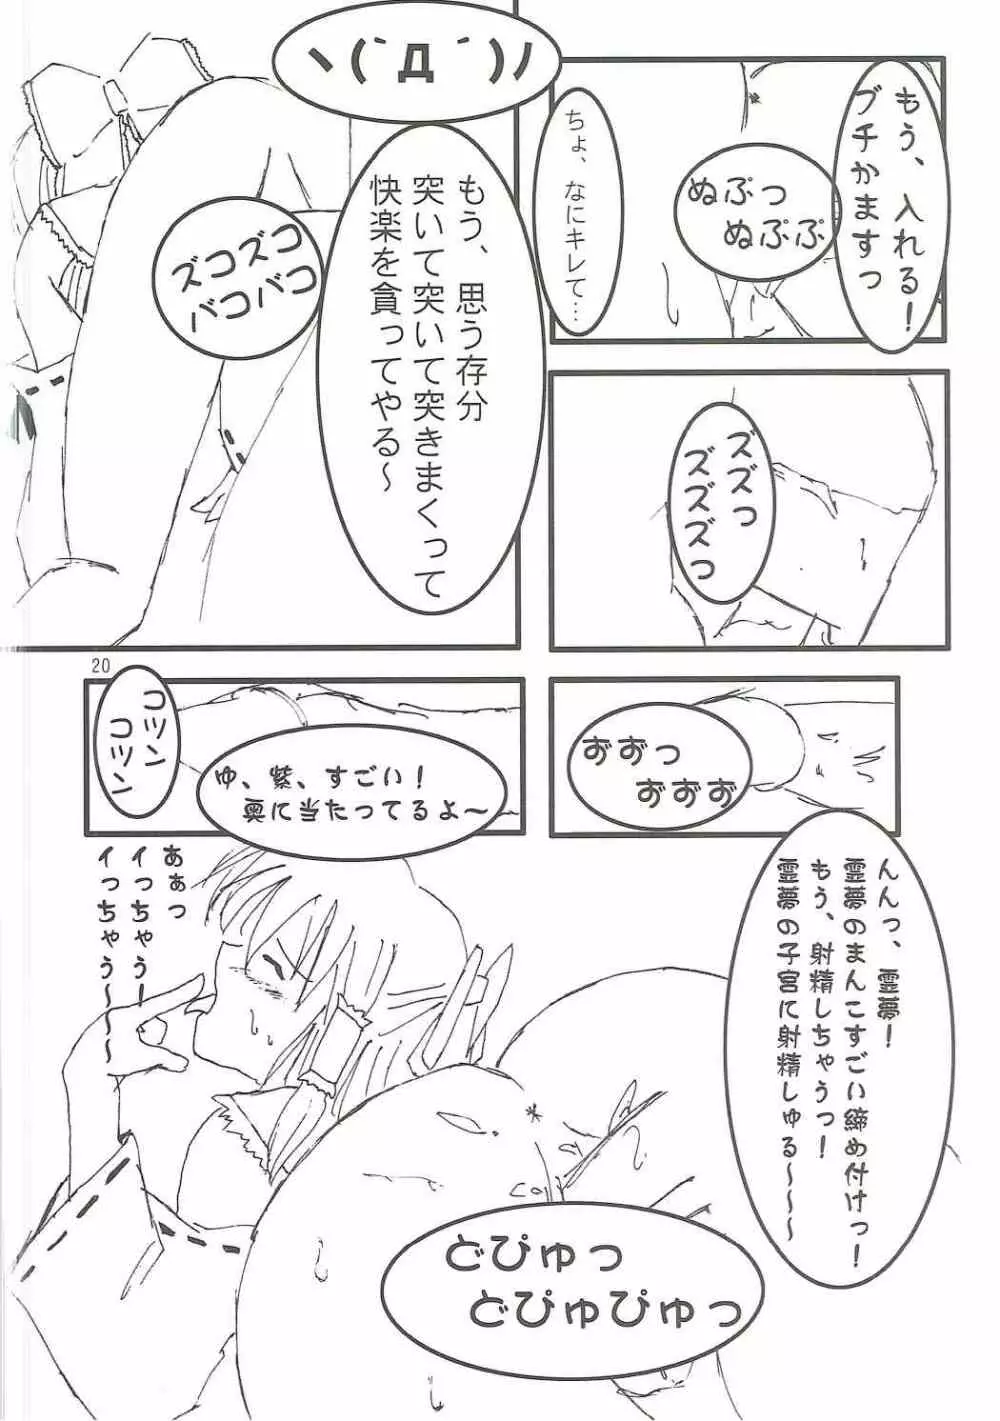 もう、入れる！
ブチかますっ
ぬぷっ
ぬぷぷ
ちょ、なにキレて…
ズズっ
ズズズっ
ヽ(`Д´)ﾉ
もう、思う存分
突いて突いて突きまくって
快楽を貪ってやる～
ズコズコ
バコバコ
20
おおっ
おおお
コツン
コツン
ゆ、紫、すごい！
奥に当たってるよ～
んんっ、霊夢！
霊夢のまんこすごい締め付けっ！
もう、射精しちゃうっ！
霊夢の子宮に射精しゅる～～～
あぁっ
イっちゃうー！
イっちゃう～～～
どぴゅっ
どぴゅぴゅっ